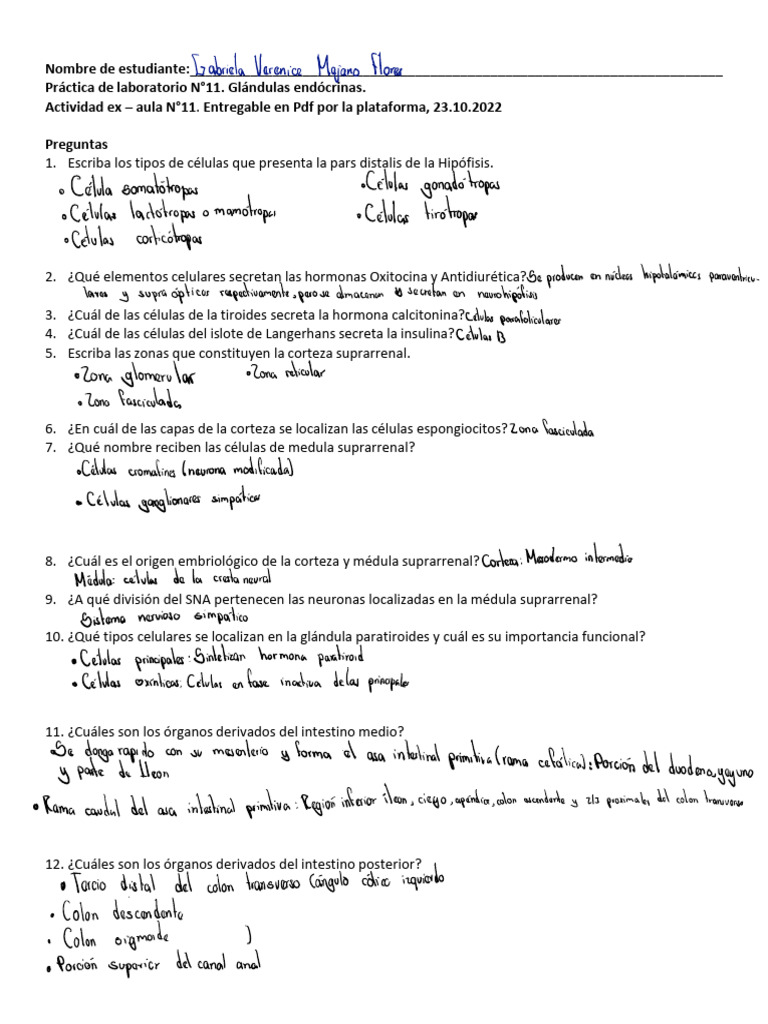 Nombre de estudiante: Gabriela Varenice Majano Flores
Práctica de laboratorio N°11. Glándulas endócrinas.
Actividad ex – aula N°11. Entregable en Pdf por la plataforma, 23.10.2022
Preguntas
1. Escriba los tipos de células que presenta la pars distalis de la Hipófisis.
• Célula somatótropas • Células gonadótropas
• Células lactótropas o mamotropas • Células tirótropas
• Células corticótropas
2. ¿Qué elementos celulares secretan las hormonas Oxitocina y Antidiurética? Se producen en núcleos hipotalámicos paraventricu-
lares y supraópticos respectivamente, pero se almacenan secretan en neurohipófisis
3. ¿Cuál de las células de la tiroides secreta la hormona calcitonina? Células parafoliculares
4. ¿Cuál de las células del islote de Langerhans secreta la insulina? Células B
5. Escriba las zonas que constituyen la corteza suprarrenal.
• Zona glomerular • Zona reticular
• Zona fasciculada
6. ¿En cuál de las capas de la corteza se localizan las células espongiocitos? Zona fasciculada
7. ¿Qué nombre reciben las células de medula suprarrenal?
• Células cromafines (neurona modificada)
• Células ganglionares simpáticas
8. ¿Cuál es el origen embriológico de la corteza y médula suprarrenal? Corteza: Mesodermo intermedio
Médula: celulas de la cresta neural
9. ¿A qué división del SNA pertenecen las neuronas localizadas en la médula suprarrenal?
Sistema nervioso simpático
10. ¿Qué tipos celulares se localizan en la glándula paratiroides y cuál es su importancia funcional?
• Células principales: Sintetizan hormona paratiroid
• Células oxínticas: Celulas en fase inactiva de las principales
11. ¿Cuáles son los órganos derivados del intestino medio?
• Se donga rapido con su mesenterio y forma el asa intestinal primitiva (rama cefálica): Porción del duodeno, yeyuno
y parte de Ileon
• Rama caudal del asa intestinal primitiva: Región inferior íleon, ciego, apéndice, colon ascendente y 2/3 proximales del colon transverso
12. ¿Cuáles son los órganos derivados del intestino posterior?
• Tercio distal del colon transverso (ángulo cólico izquierdo
• Colon descendente
• Colon sigmoide )
• Porción superior del canal anal